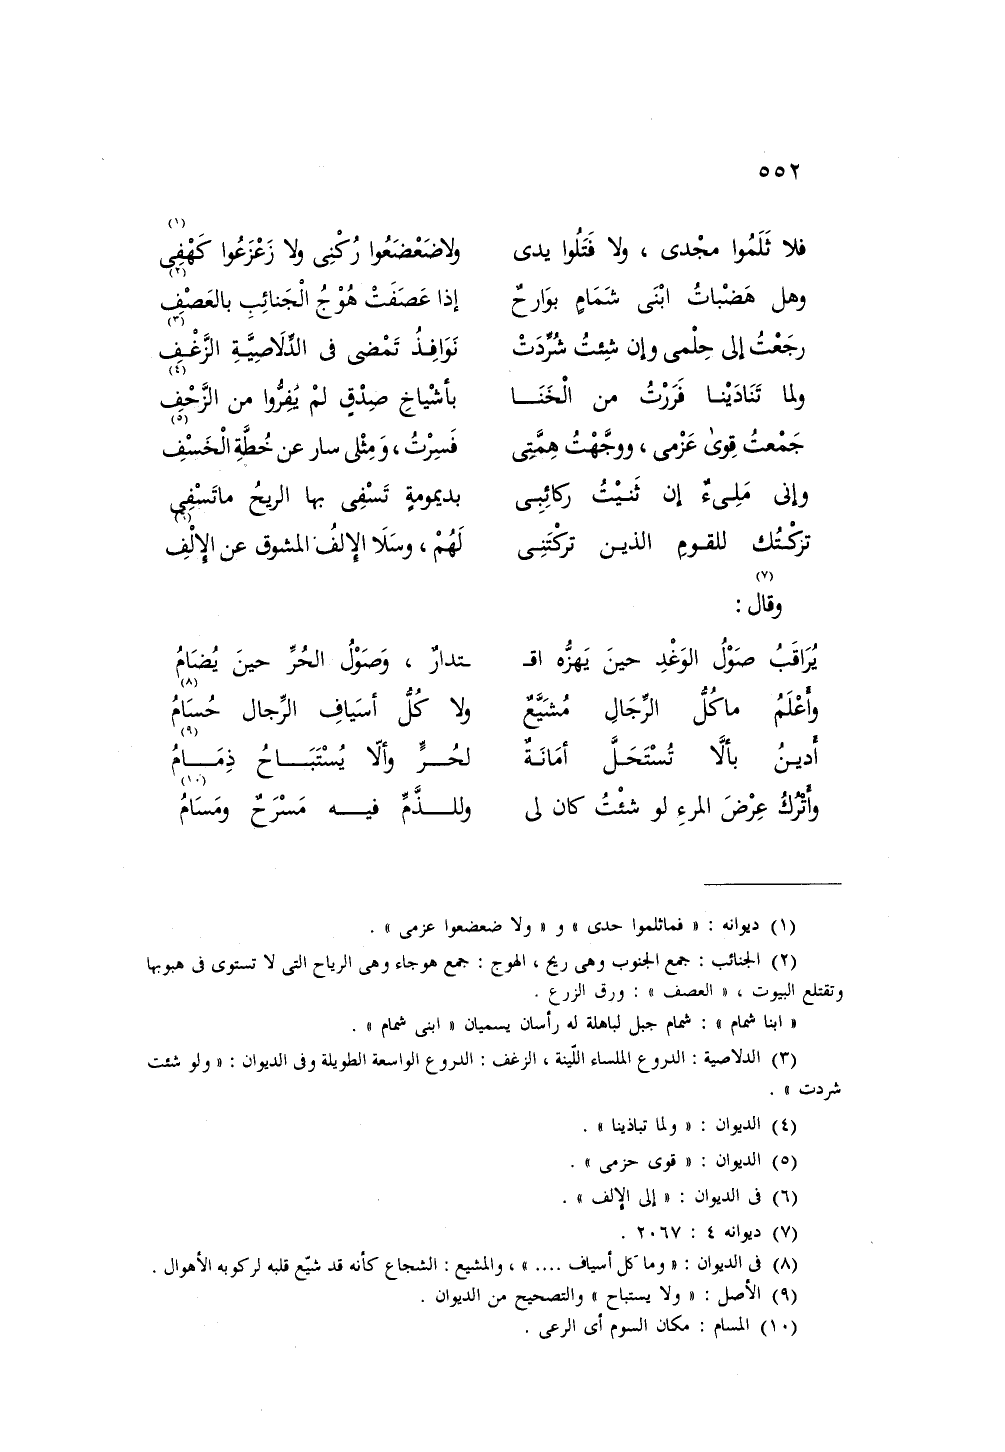 ٥٥٢
(١)
فلا ثَلَمُوا مجْدى ، ولا فَتَلُوا يدى ولاضَعْضَعُوا رُكْنِى ولا زَعْزَعُوا كَهْفِى
(٢)
وهل هَضْباتُ ابْنَى شَمَامٍ بوَارحٌ إذا عَصَفَتْ هُوْجُ الْجَنائِبِ بالعَصْفِ
(٣)
رجَعْتُ إلى حِلْمى وإن شِئتُ شُرِّدَتْ نَوَافِذُ تَمْضى فى الدِّلَاصِيَّةِ الزَّغْفِ
(٤)
ولما تَنَادَيْنا فَرَرْتُ من الْخَنَا بأشْياخِ صِدْقٍ لمْ يُفِرُّوا من الزَّحْفِ
(٥)
جَمْعتُ قِوىٰ عَزْمى ، ووجَّهْتُ هِمَّتِى فَسِرْتُ ، وَمِثْلى سار عن خُطَّةِ الْخَسْفِ
وإنى مَلِىءٌ إن ثَنيْتُ ركائِبِى بديمومةٍ تَسْفِى بها الريحُ ماتَسْفِى
(٦)
تركْتُك للقومِ الذين تركْتَنِى لَهُمْ ، وسَلَا الإلفُ المشوق عن الإِلْفِ
(٧)
وقال :
يُرَاقَبُ صَوْلُ الوَغْدِ حينَ يَهزُّه اقـ ـتدارٌ ، وَصَوْلُ الحُرِّ حينَ يُضَامُ
(٨)
وأَعْلَمُ ماكُلُّ الرِّجَالِ مُشَيَّعٌ ولا كُلُّ أسيَافِ الرِّجال حُسَامُ
(٩)
أَدينُ بألَّا تُسْتَحَلَّ أمَانَةٌ لحُرٍّ وألّا يُسْتَبَاحُ ذِمَامُ
(١٠)
وأَتْرُكُ عِرْضَ المرءِ لو شئْتُ كان لى وللذَّمِّ فيه مَسْرَحٌ ومَسَامُ
(١) ديوانه : « فماثلموا حدى » و « ولا ضعضعوا عزمى » .
(٢) الجنائب : جمع الجنوب وهى ريح ، الهوج : جمع هوجاء وهى الرياح التى لا تستوى فى هبوبها
وتقتلع البيوت ، « العصف » : ورق الزرع .
« ابنا شمام » : شمام جبل لباهلة له رأسان يسميان « ابنى شمام » .
(٣) الدلاصية : الدروع الملساء اللّينة ، الزغف : الدروع الواسعة الطويلة وفى الديوان : « ولو شئت
شردت » .
(٤) الديوان : « ولما تباذينا » .
(٥) الديوان : « قوى حزمى » .
(٦) فى الديوان : « إلى الإلف » .
(٧) ديوانه ٤ : ٢٠٦٧ .
(٨) فى الديوان : « وما كل أسياف .... » ، والمشيع : الشجاع كأنه قد شيّع قلبه لركوبه الأهوال .
(٩) الأصل : « ولا يستباح » والتصحيح من الديوان .
(١٠) المسام : مكان السوم أى الرعى .